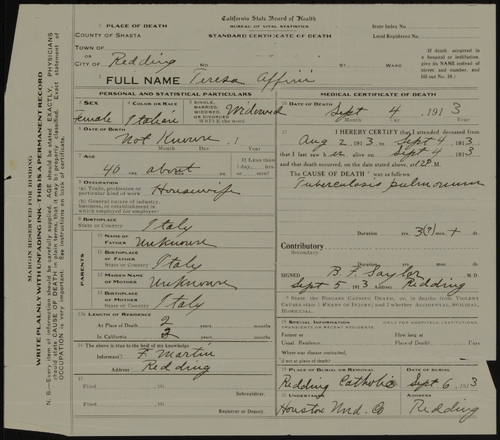 California State Board of Health
BUREAU OF VITAL STATISTICS
STANDARD CERTIFICATE OF DEATH
1 PLACE OF DEATH
COUNTY OF SHASTA
TOWN OF
or
CITY OF Redding No. ST; WARD
State Index No.
Local Registered No.
If death occurred in a hospital or institution, give its NAME instead of street and number, and fill out No. 18.
FULL NAME Teresa Affini
PERSONAL AND STATISTICAL PARTICULARS
3 SEX
female
4 COLOR OR RACE
Italian
5 SINGLE, MARRIED, WIDOWED, OR DIVORCED
WRITE the word
Widowed
6 DATE OF BIRTH
Not Known, 1
Month Day Year
7 AGE
40 yrs. about
8 OCCUPATION
(a) Trade, profession or particular kind of work
Housewife
(b) General nature of industry, business, or establishment in which employed (or employer)
9 BIRTHPLACE
State or Country
Italy
PARENTS
10 NAME OF FATHER
Unknown
11 BIRTHPLACE OF FATHER
State or Country
Italy
12 MAIDEN NAME OF MOTHER
Unknown
13 BIRTHPLACE OF MOTHER
State or Country
Italy
LENGTH OF RESIDENCE
At Place of Death 2 years. months
In California 3 years. months
14 The above is true to the best of my knowledge
(Informant) F. Martin
Address Redding
15
Filed 191
Subregistrar.
Filed 191
Registrar or Deputy
MEDICAL CERTIFICATE OF DEATH
16 DATE OF DEATH
Sept 4, 1913
Month Day Year
17
I HEREBY CERTIFY, that I attended deceased from
Aug 2 1913 to Sept 4 1913
that I last saw h alive on Sept 4 1913
and that death occurred on the date stated above, at M.
The CAUSE OF DEATH was as follows:
Tuberculosis pulmonum
Duration yrs. mos. ds.
Contributory
Secondary
Duration yrs. mos. ds.
SIGNED B. F. Saylor M. D.
Sept 5 1913 Address Redding
18 SPECIAL INFORMATION ONLY FOR HOSPITALS, INSTITUTIONS, TRANSIENTS OR RECENT RESIDENTS
Former or Usual Residence
How long at Place of Death? Days
Where was disease contracted,
if not at place of death?
19 PLACE OF BURIAL OR REMOVAL
Redding Catholic
DATE OF BURIAL
Sept 6, 1913
20 UNDERTAKER
Houston Und. Co
ADDRESS
Redding
MARGIN RESERVED FOR BINDING
WRITE PLAINLY WITH UNFADING INK—THIS IS A PERMANENT RECORD
N. B.—Every item of information should be carefully supplied. AGE should be stated EXACTLY. PHYSICIANS
should state CAUSE OF DEATH in plain terms, that it may be properly classified. Exact statement of
OCCUPATION is very important. See instructions on back of certificate.